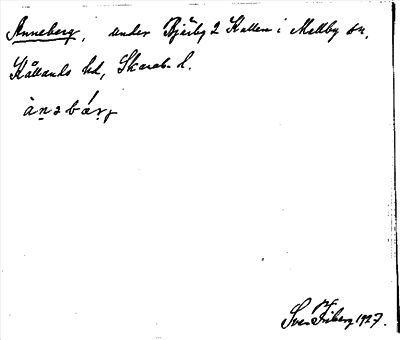 Anneberg, under Bjerby 2 Kallen i Mellby sn,
Kållands hd, Skarab. l.
ànəbárj
Sven Friberg 1927.